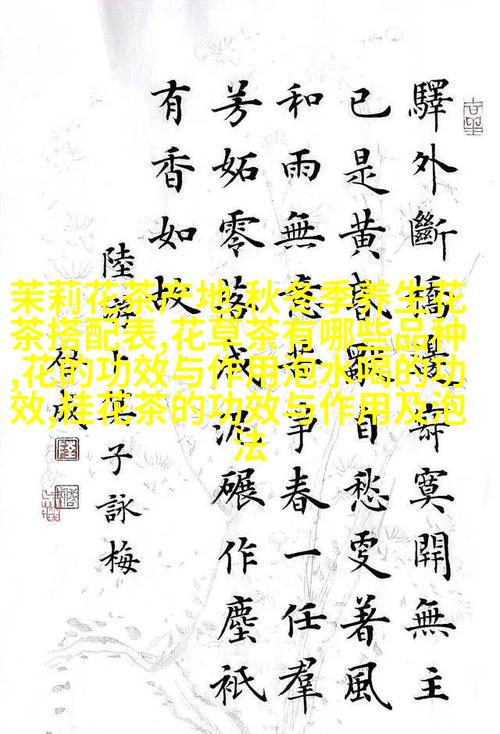 驛外斷橋邊寂寞開無主
已是黃昏獨自愁更著風
和雨無意苦爭春一任羣
芳妬零落成泥碾作塵衹
有香如故
陸游卜算子詠梅
茉莉花茶产地,秋冬季养生花
茶搭配表,花草茶有哪些品种
,花的功效与作用泡水喝的功
效,桂花茶的功效与作用及泡
法